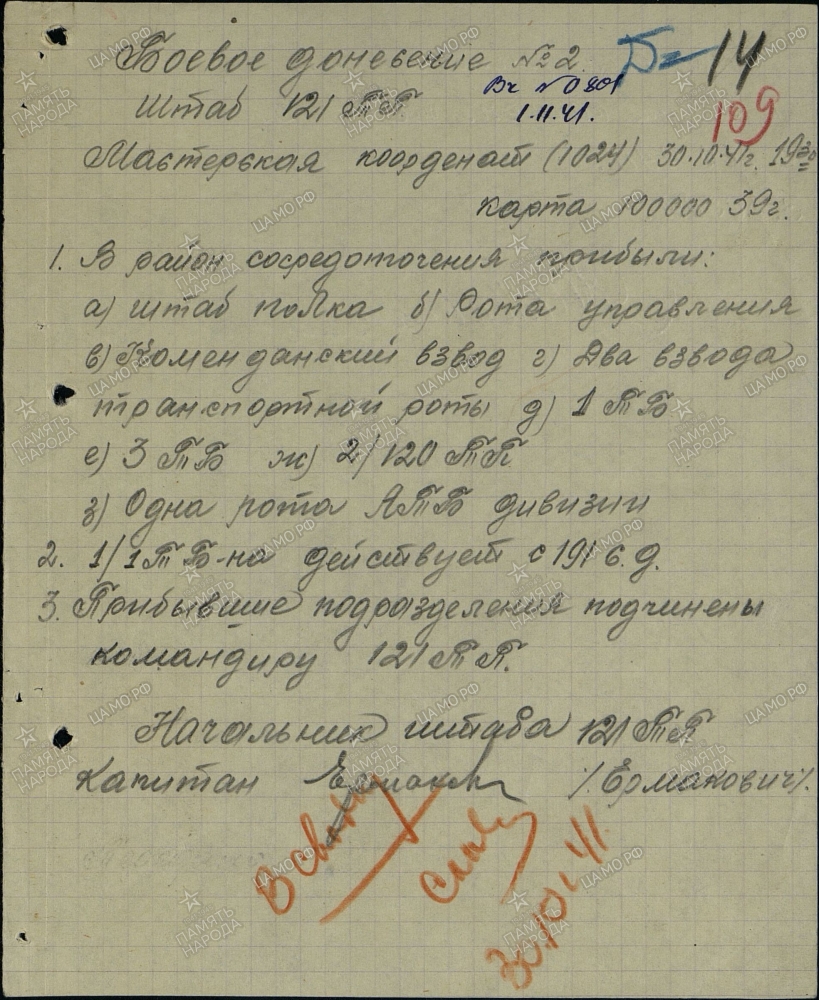 Боевое донесение №2.
14
Вх №0801
Штаб 121 ТП.
1.11.41.
109
Мастерская координат (1024) 30.10.41г. 19 30
карта 100000 39г.
1. В район сосредоточения прибыли:
а) штаб полка б) Рота управления
в) Комендански взвод г) Два взвода
транспортной роты д) 1 ТБ
е) 3 ТБ ж) 2/120 ТП
з) Одна рота АТБ дивизии
2. 1/1 ТБ-на действует с 191 с.д.
3. Прибывшие подразделения подчинены
командиру 121 ТП.
Начальник штаба 121 ТП
Капитан /Ермакович/.
30.10.41
ПАМЯТЬ НАРОДА
ЦАМО.РФ